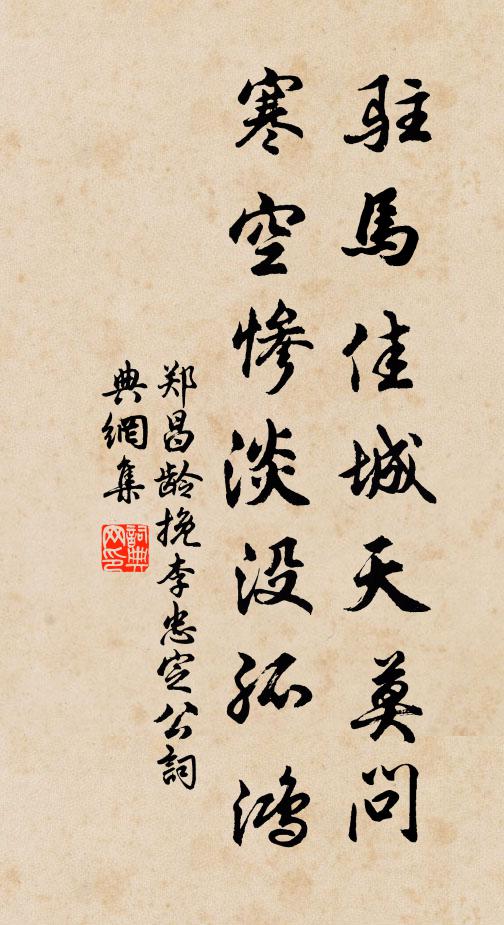 駐馬佳城天莫问
寒空惨淡没孤鸿
郑昌龄挽李忠定公詞
典網集
詞典网印